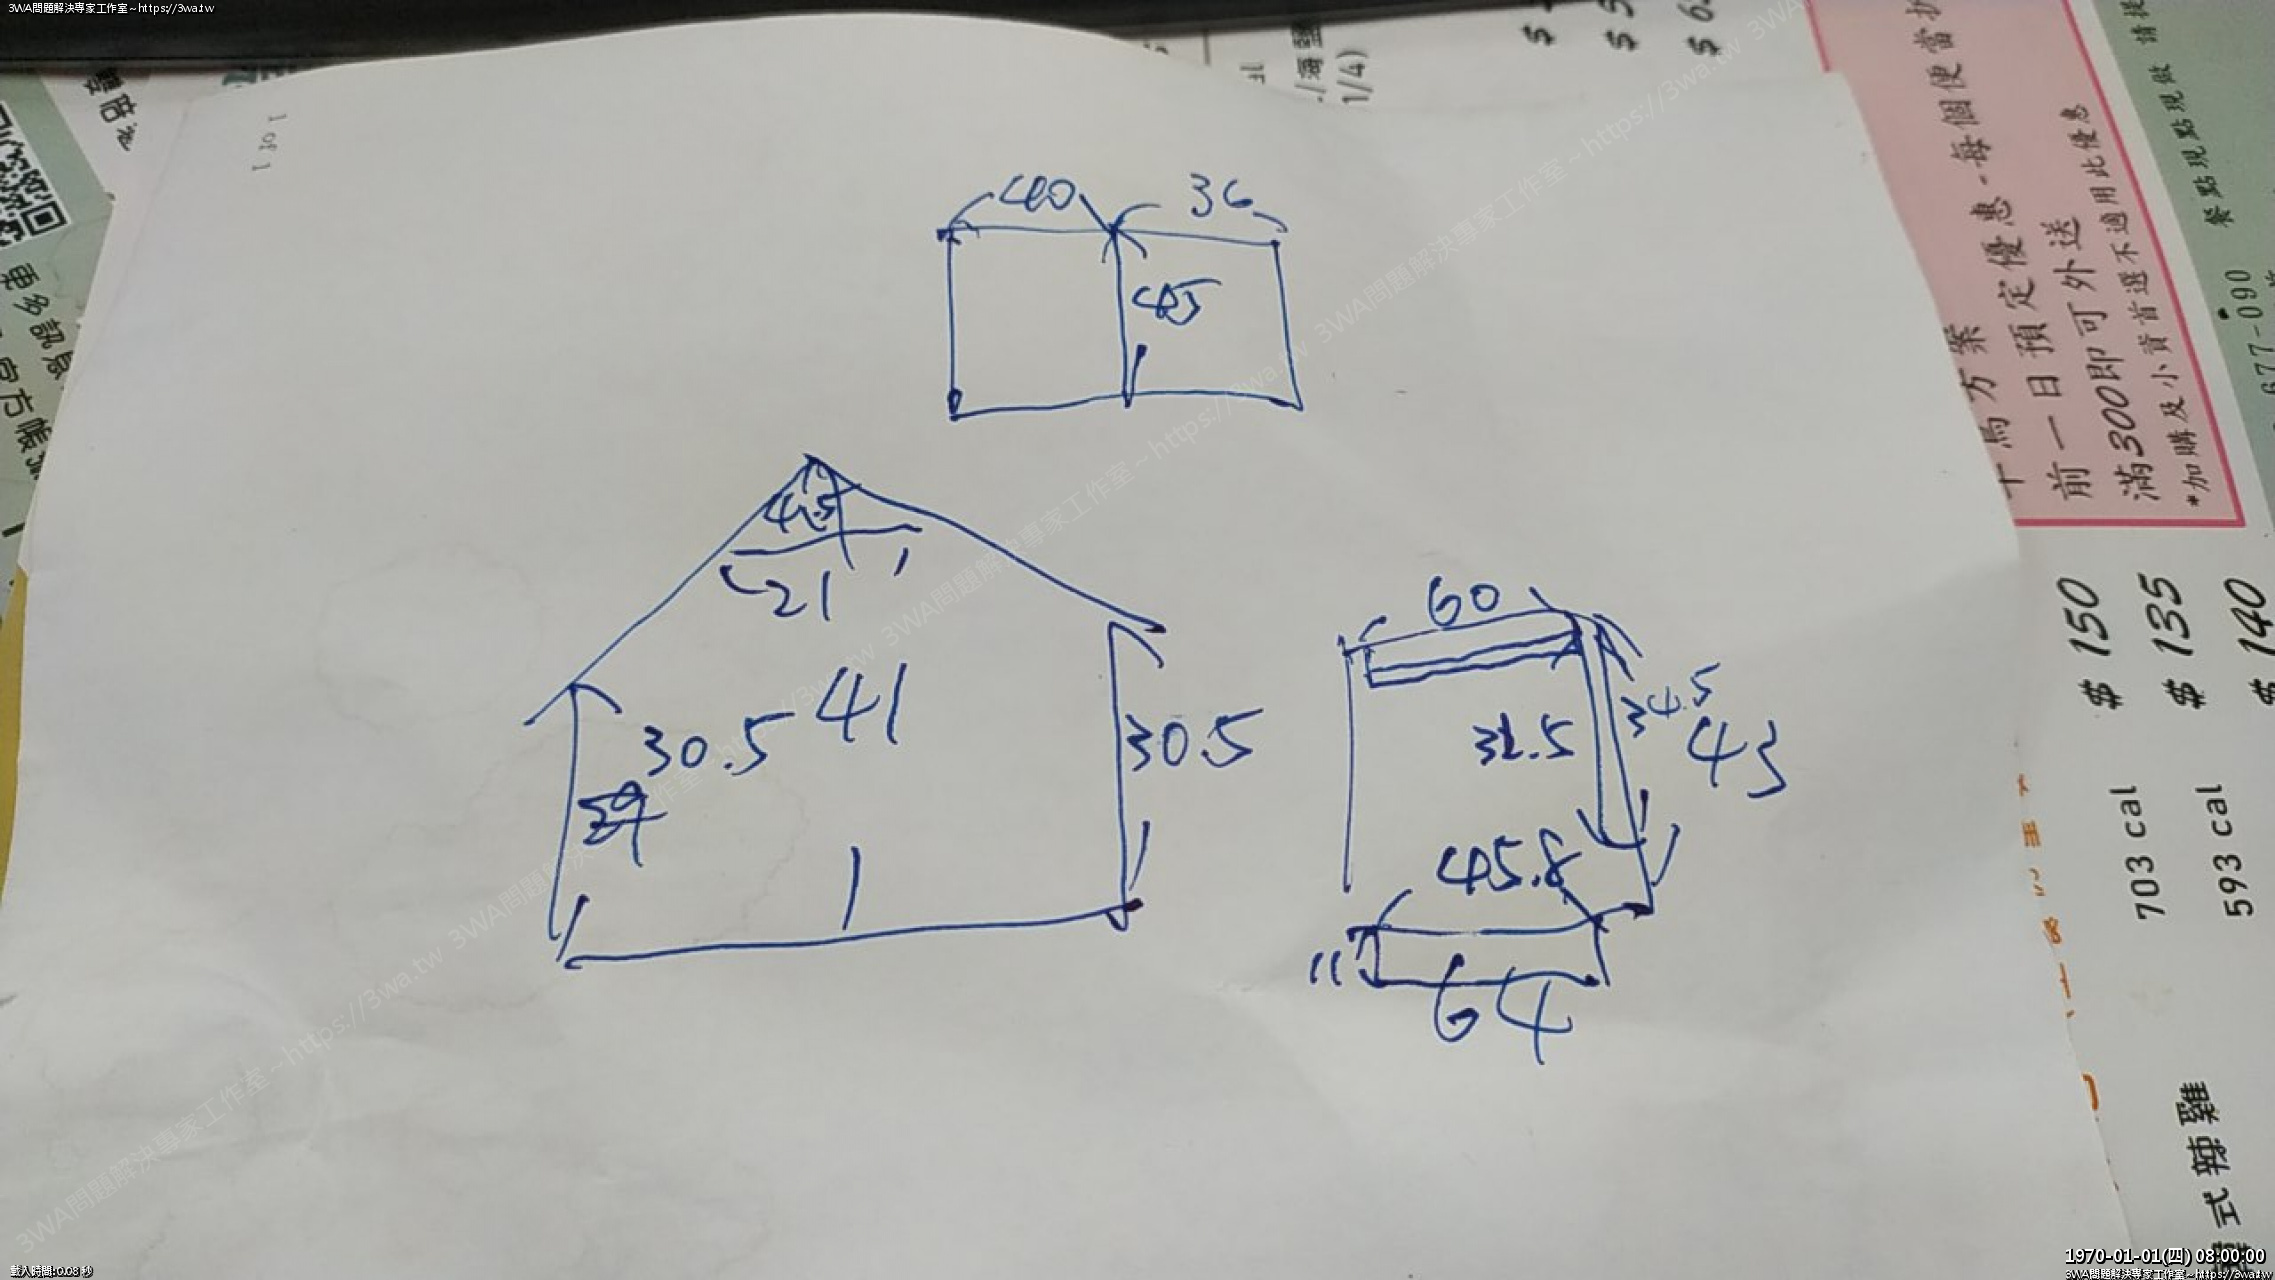 3WA問題解決專家工作室~https://3wa.tw
40
36
45
4.5
21
41
30.5
30.5
60
34.5
43
45.8
11
64
1 of 1
更多訊息
官方帳
海鹽
1/4)
$ 5
$ 6.
方案
前一日預定優惠-每個便當折
滿300即可外送
*加購及小資首選不適用此優惠
餐點現點現做 請提
677-090
$ 150
$ 135
$ 140
703 cal
593 cal
式辣雞
載入時間:0.08 秒
1970-01-01(四) 08:00:00
3WA問題解決專家工作室~https://3wa.tw